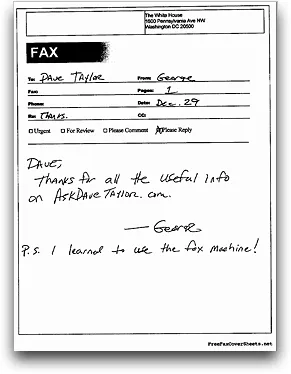 The White House
1600 Pennsylvania Ave NW
Washington DC 20500
FAX
To: Dave Taylor From: George
Fax: Pages: 1
Phone: Date: Dec. 29
Re: Thanks. CC:
☐ Urgent ☐ For Review ☐ Please Comment ☒ Please Reply
Dave,
Thanks for all the useful info
on AskDaveTaylor.com.
— George
P.S. I learned to use the fax machine!
FreeFaxCoverSheets.net